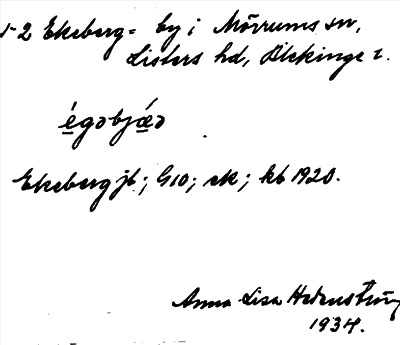 1-2 Ekeberg = by i Mörrums sn,
Listers hd, Blekinge l.
égəbjǽə
Ekeberg jb; G10; ek; kb 1920.
Anna Lisa
1934.